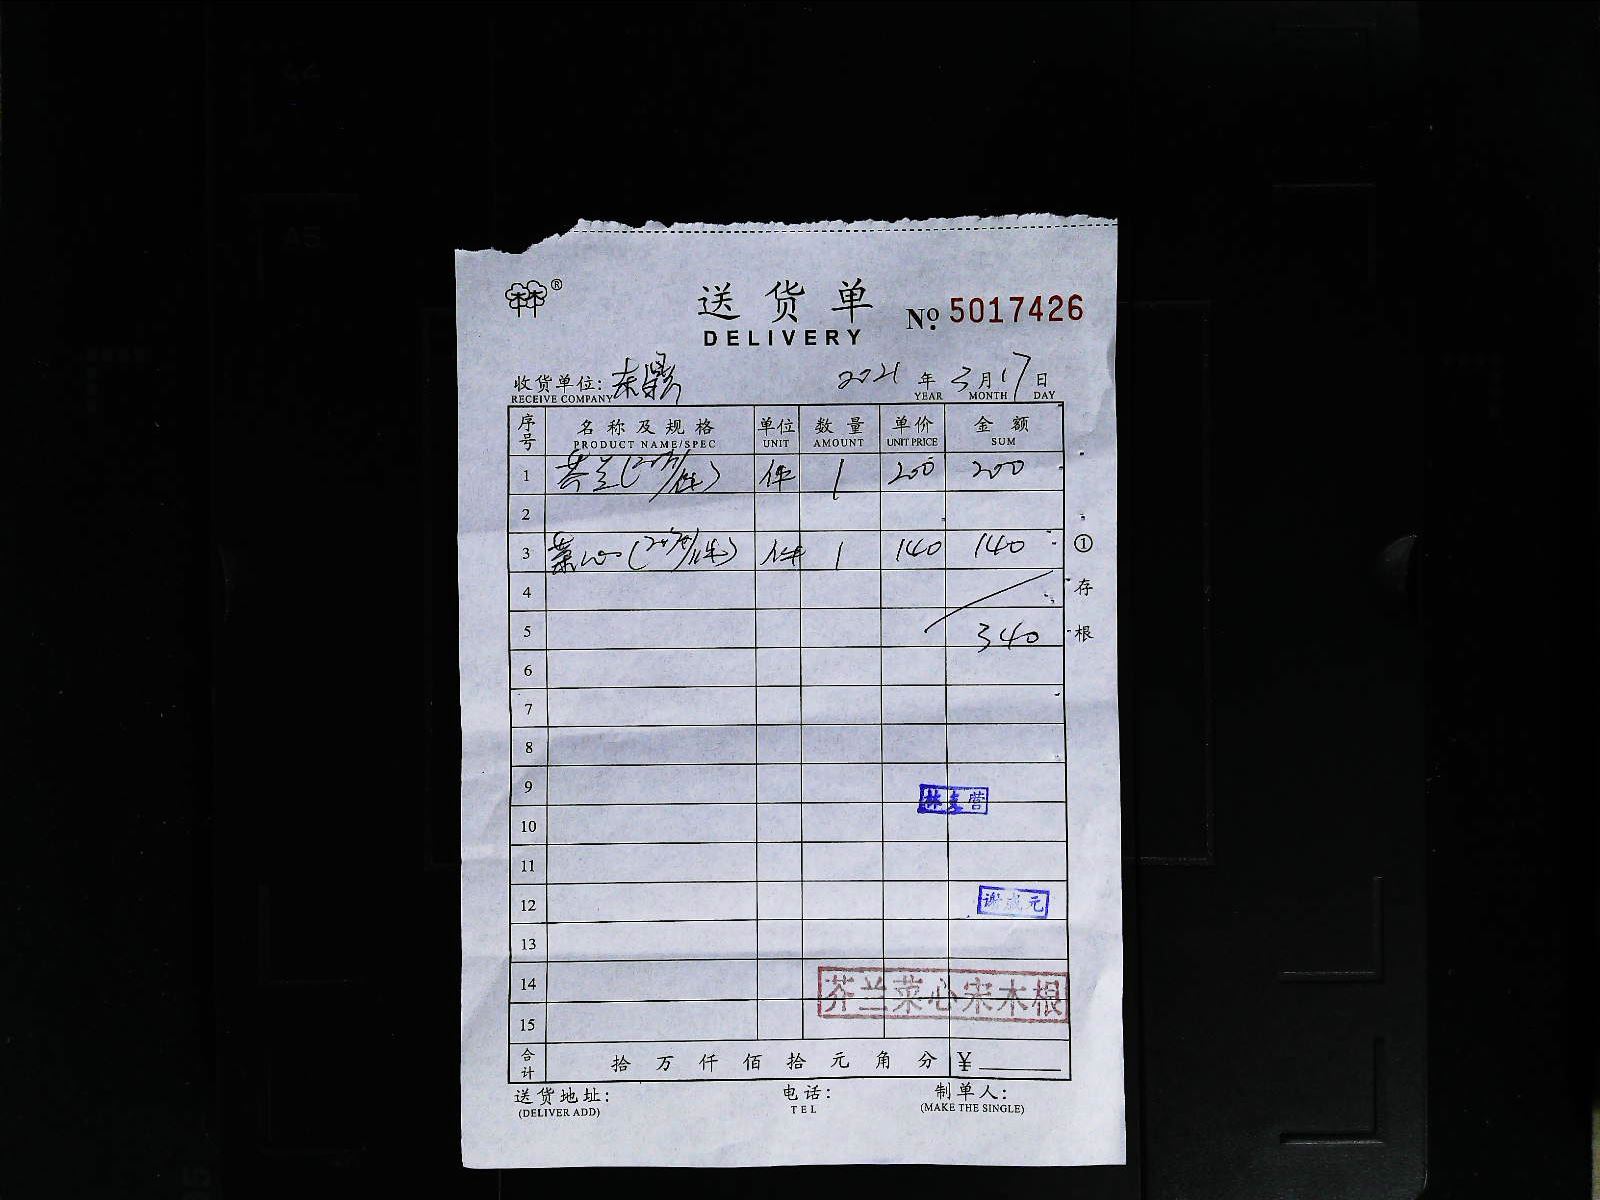 林®
送货单
DELIVERY
№ 5017426
收货单位: 东鼎
RECEIVE COMPANY
2021 年 3 月 17 日
YEAR MONTH DAY
序号 名称及规格 单位 数量 单价 金额
PRODUCT NAME/SPEC UNIT AMOUNT UNIT PRICE SUM
1 芥兰(20斤/件) 件 1 200 200
2
3 菜心(20斤/件) 件 1 140 140
4
5 340
6
7
8
9
10
11
12 谢成元
13
14 芬兰菜心宋木根
15
合计 拾 万 仟 佰 拾 元 角 分 ¥
① 存根
送货地址: 电话: 制单人:
(DELIVER ADD) TEL (MAKE THE SINGLE)